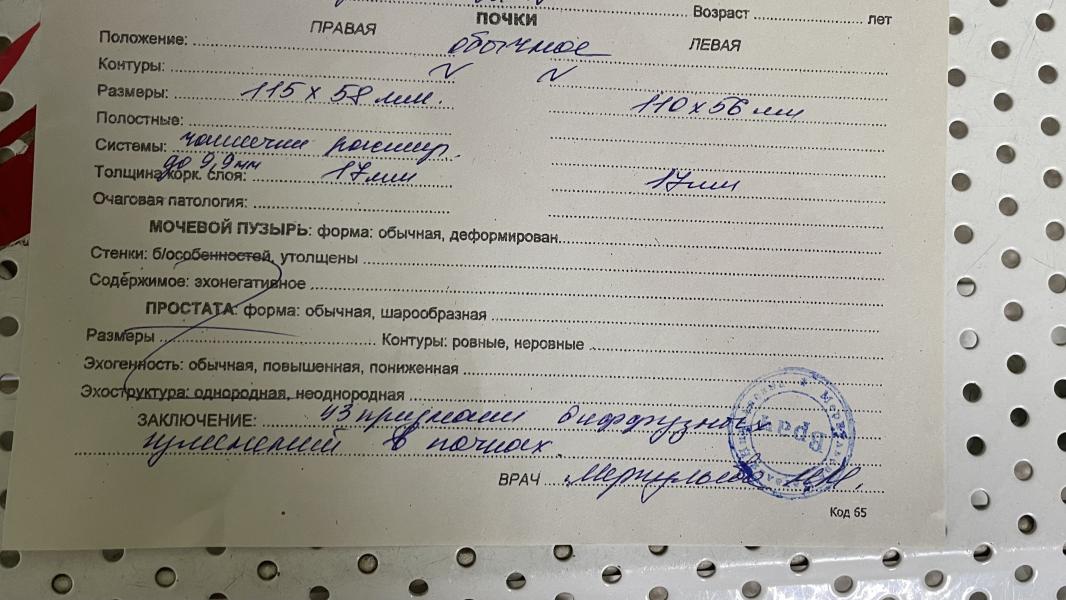 Возраст .......... лет
ПОЧКИ
ПРАВАЯ ЛЕВАЯ
Положение: обычное
Контуры: N N
Размеры: 115 х 58 мм. 110 х 56 мм
Полостные:
Системы: чашечки расшир.
до 9,9 мм
Толщина корк. слоя: 17 мм 17 мм
Очаговая патология:
МОЧЕВОЙ ПУЗЫРЬ: форма: обычная, деформирован
Стенки: б/особенностей, утолщены
Содержимое: эхонегативное
ПРОСТАТА: форма: обычная, шарообразная
Размеры .......... Контуры: ровные, неровные
Эхогенность: обычная, повышенная, пониженная
Эхоструктура: однородная, неоднородная
ЗАКЛЮЧЕНИЕ: УЗ признаки диффузных
изменений в почках.
ВРАЧ
Врач
Код 65